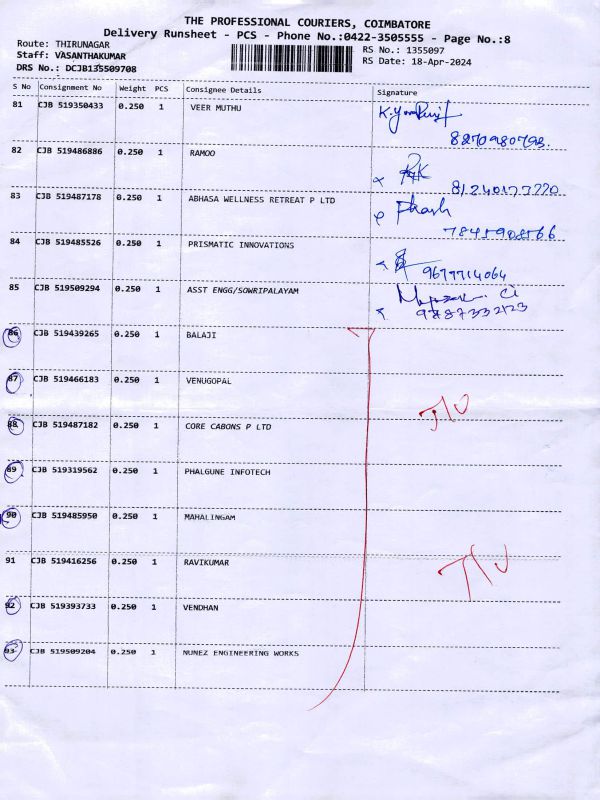 THE PROFESSIONAL COURIERS, COIMBATORE
Delivery Runsheet - PCS - Phone No.:0422-3505555 - Page No.:8
Route: THIRUNAGAR
RS No.: 1355097
Staff: VASANTHAKUMAR
RS Date: 18-Apr-2024
DRS No.: DCJB135509708
S No Consignment No Weight PCS Consignee Details Signature
81 CJB 519350433 0.250 1 VEER MUTHU
8270980793.
82 CJB 519486886 0.250 1 RAMOO
83 CJB 519487178 0.250 1 ABHASA WELLNESS RETREAT P LTD
84 CJB 519485526 0.250 1 PRISMATIC INNOVATIONS
9677714064
85 CJB 519509294 0.250 1 ASST ENGG/SOWRIPALAYAM
86 CJB 519439265 0.250 1 BALAJI
87 CJB 519466183 0.250 1 VENUGOPAL
88 CJB 519487182 0.250 1 CORE CABONS P LTD
89 CJB 519319562 0.250 1 PHALGUNE INFOTECH
90 CJB 519485950 0.250 1 MAHALINGAM
91 CJB 519416256 0.250 1 RAVIKUMAR
92 CJB 519393733 0.250 1 VENDHAN
93 CJB 519509204 0.250 1 NUNEZ ENGINEERING WORKS